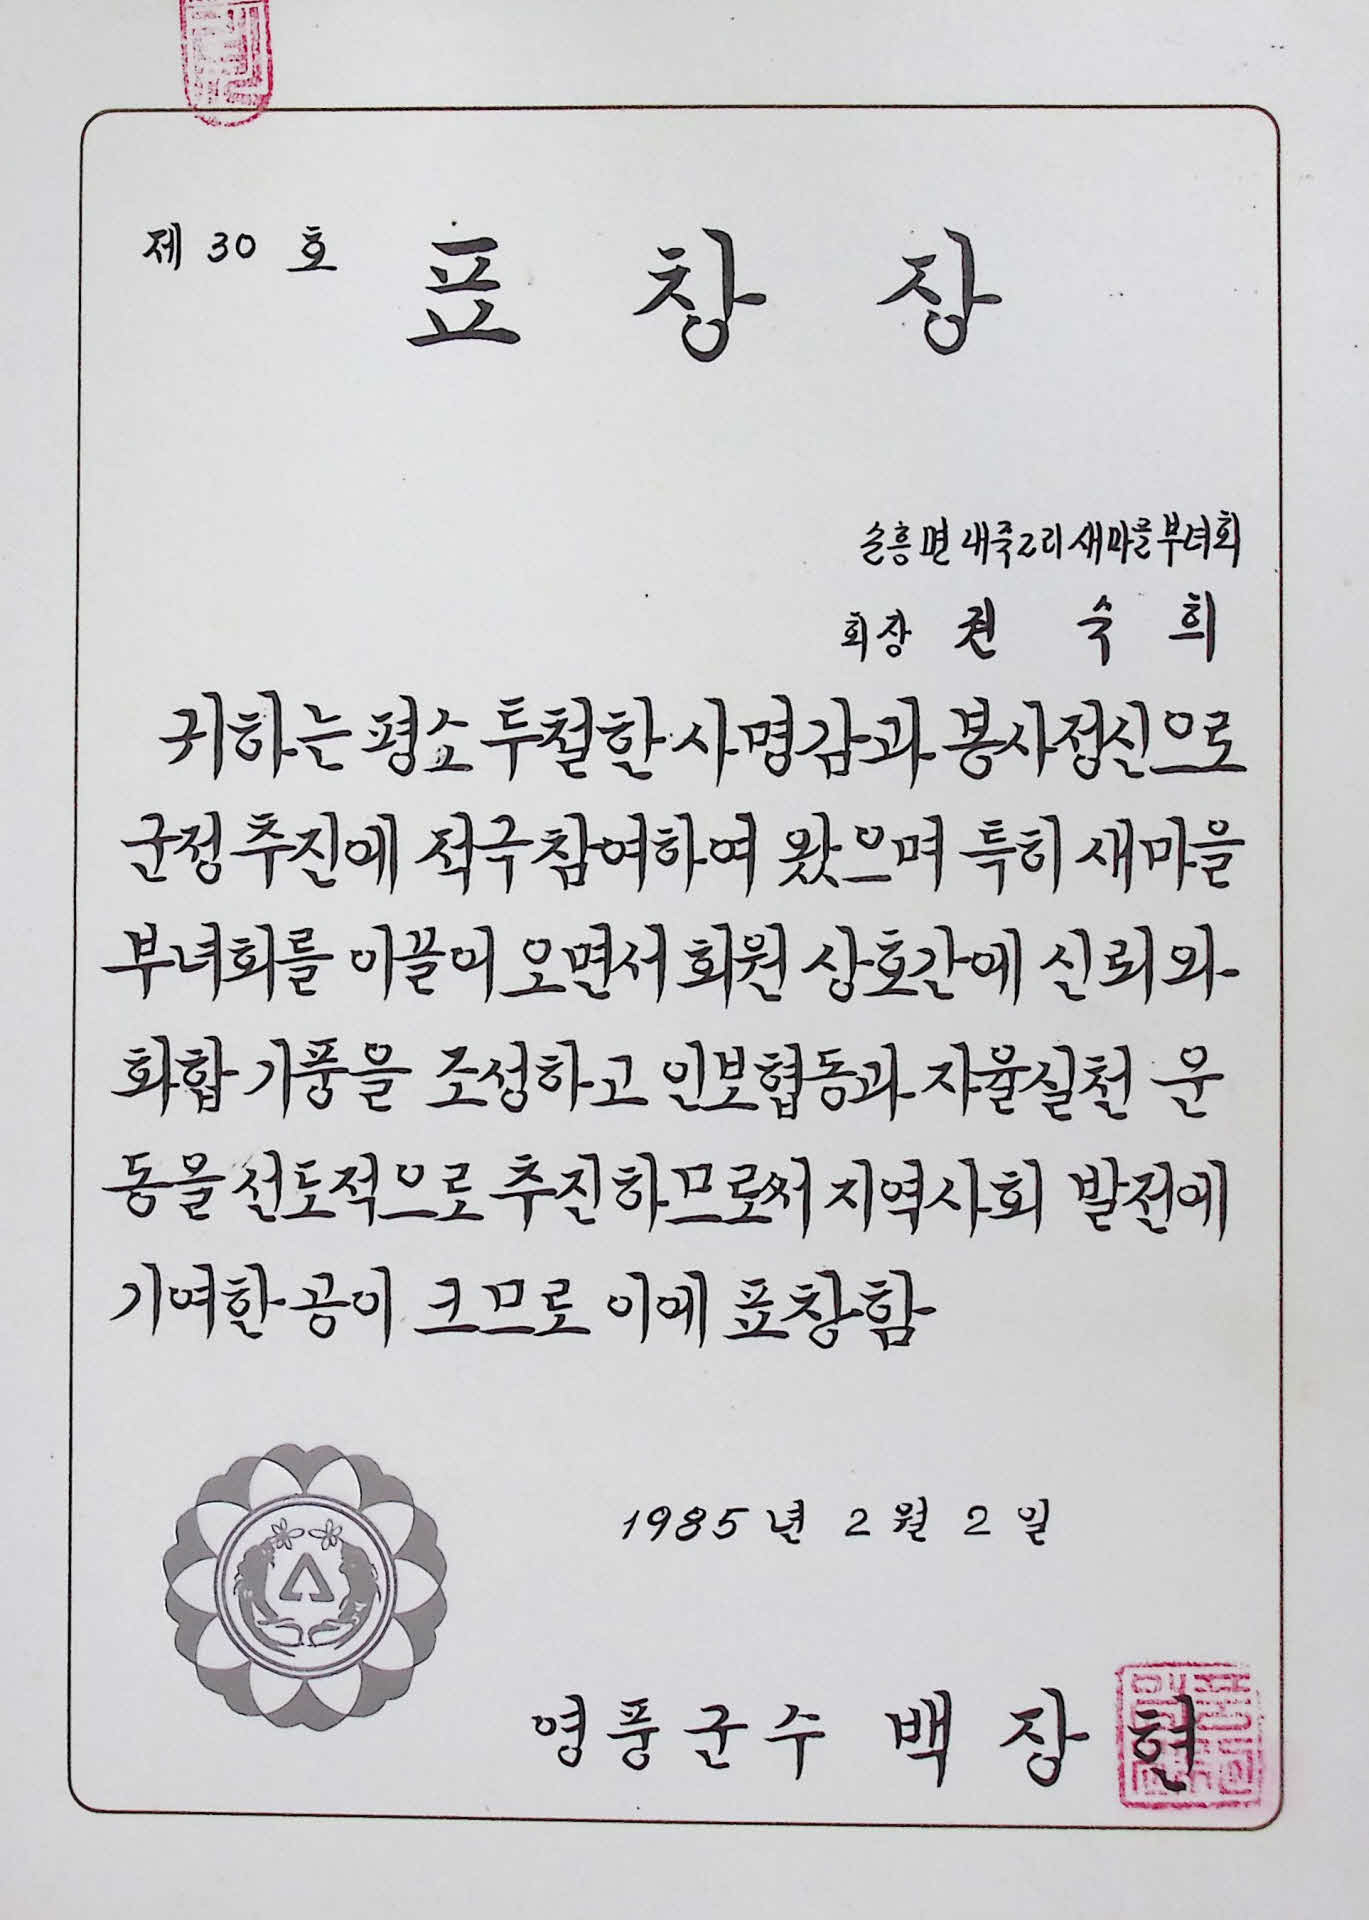 제 30 호
표 창 장
순흥면 내죽2리 새마을부녀회
회장 권 숙 희
귀하는 평소 투철한 사명감과 봉사정신으로
군정 추진에 적극 참여하여 왔으며 특히 새마을
부녀회를 이끌어 오면서 회원 상호간에 신뢰와
화합 기풍을 조성하고 인보협동과 자율실천 운
동을 선도적으로 추진하므로써 지역사회 발전에
기여한 공이 크므로 이에 표창함
1985년 2월 2일
영풍군수 백 장 현